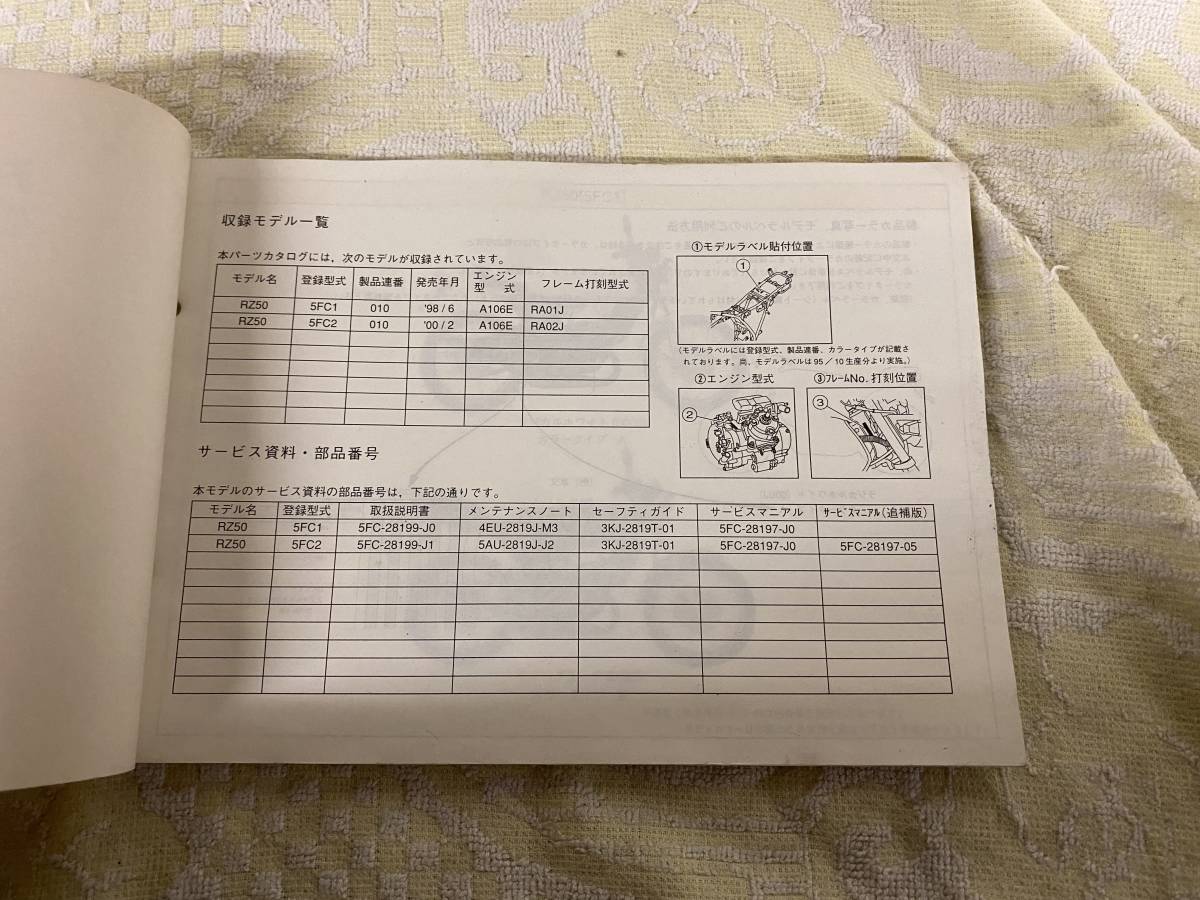 収録モデル一覧
本パーツカタログには,次のモデルが収録されています。
モデル名 登録型式 製品連番 発売年月 エンジン型式 フレーム打刻型式
RZ50 5FC1 010 '98/6 A106E RA01J
RZ50 5FC2 010 '00/2 A106E RA02J
①モデルラベル貼付位置
①
(モデルラベルには登録型式、製品連番、カラータイプが記載さ
れております。尚、モデルラベルは95/10生産分より実施。)
②エンジン型式
②
③フレームNo. 打刻位置
③
サービス資料・部品番号
本モデルのサービス資料の部品番号は,下記の通りです。
モデル名 登録型式 取扱説明書 メンテナンスノート セーフティガイド サービスマニアル サービスマニアル(追補版)
RZ50 5FC1 5FC-28199-J0 4EU-2819J-M3 3KJ-2819T-01 5FC-28197-J0
RZ50 5FC2 5FC-28199-J1 5AU-2819J-J2 3KJ-2819T-01 5FC-28197-J0 5FC-28197-05